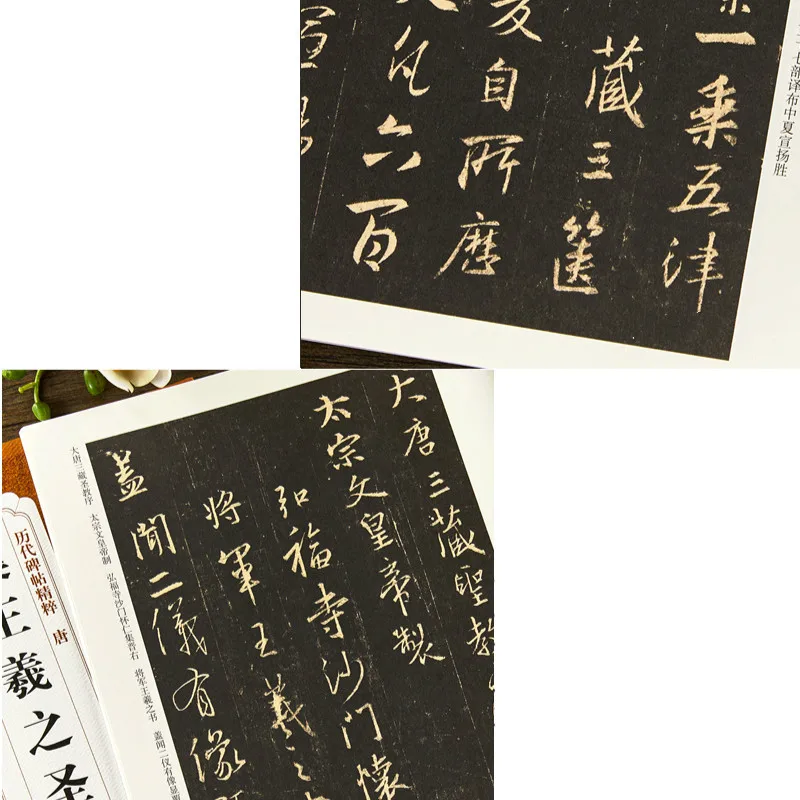 一乘五津
藏三箧
自所歷
凡六百
部译布中夏宣扬胜
大唐三藏聖教
太宗文皇帝製
弘福寺沙門懷
將軍王羲之
蓋聞二儀有像
大唐三藏圣教序 太宗文皇帝制 弘福寺沙门怀仁集晋右 将军王羲之书 盖闻二仪有像显
历代碑帖精粹 唐
王羲之圣